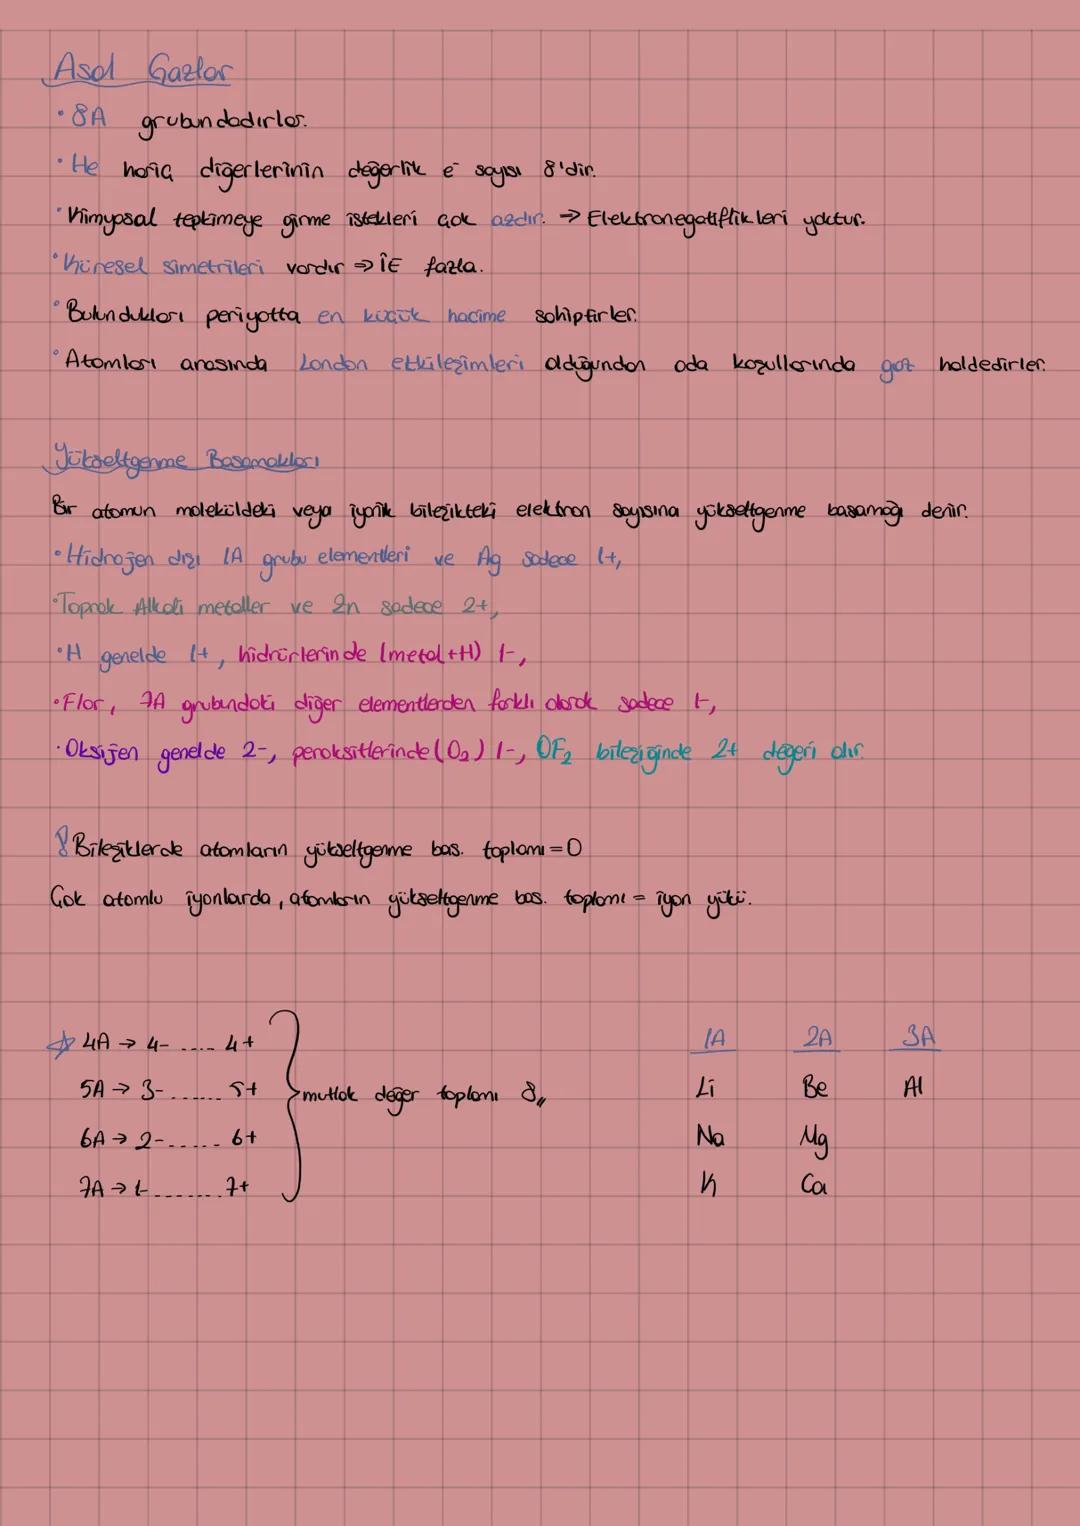 Asal Gazlar
• 8A grubundadırlar.
• He hariç diğerlerinin değerlik e⁻ sayısı 8'dir.
• Kimyasal tepkimeye girme istekleri çok azdır. → Elektronegatiflikleri yoktur.
• Küresel simetrileri vardır ⇒ İE fazla.
• Bulundukları periyotta en küçük hacime sahiptirler.
• Atomları arasında London etkileşimleri olduğundan oda koşullarında gaz haldedirler.
Yükseltgenme Basamakları
Bir atomun moleküldeki veya iyonik bileşikteki elektron sayısına yükseltgenme basamağı denir.
• Hidrojen dışı 1A grubu elementleri ve Ag sadece 1+,
• Toprak Alkali metaller ve Zn sadece 2+,
• H genelde 1+, hidrürlerinde (metal+H) 1-,
• Flor, 7A grubundaki diğer elementlerden farklı olarak sadece 1-,
• Oksijen genelde 2-, peroksitlerinde (O₂) 1-, OF₂ bileşiğinde 2+ değeri alır.
! Bileşiklerde atomların yükseltgenme bas. toplamı = 0
Çok atomlu iyonlarda, atomların yükseltgenme bas. toplamı = iyon yükü.
☆ 4A → 4- .... 4+
5A → 3- ...... 5+
6A → 2- ...... 6+
7A → 1- ....... 7+
mutlak değer toplamı 8,,
1A 2A 3A
Li Be Al
Na Mg
K Ca